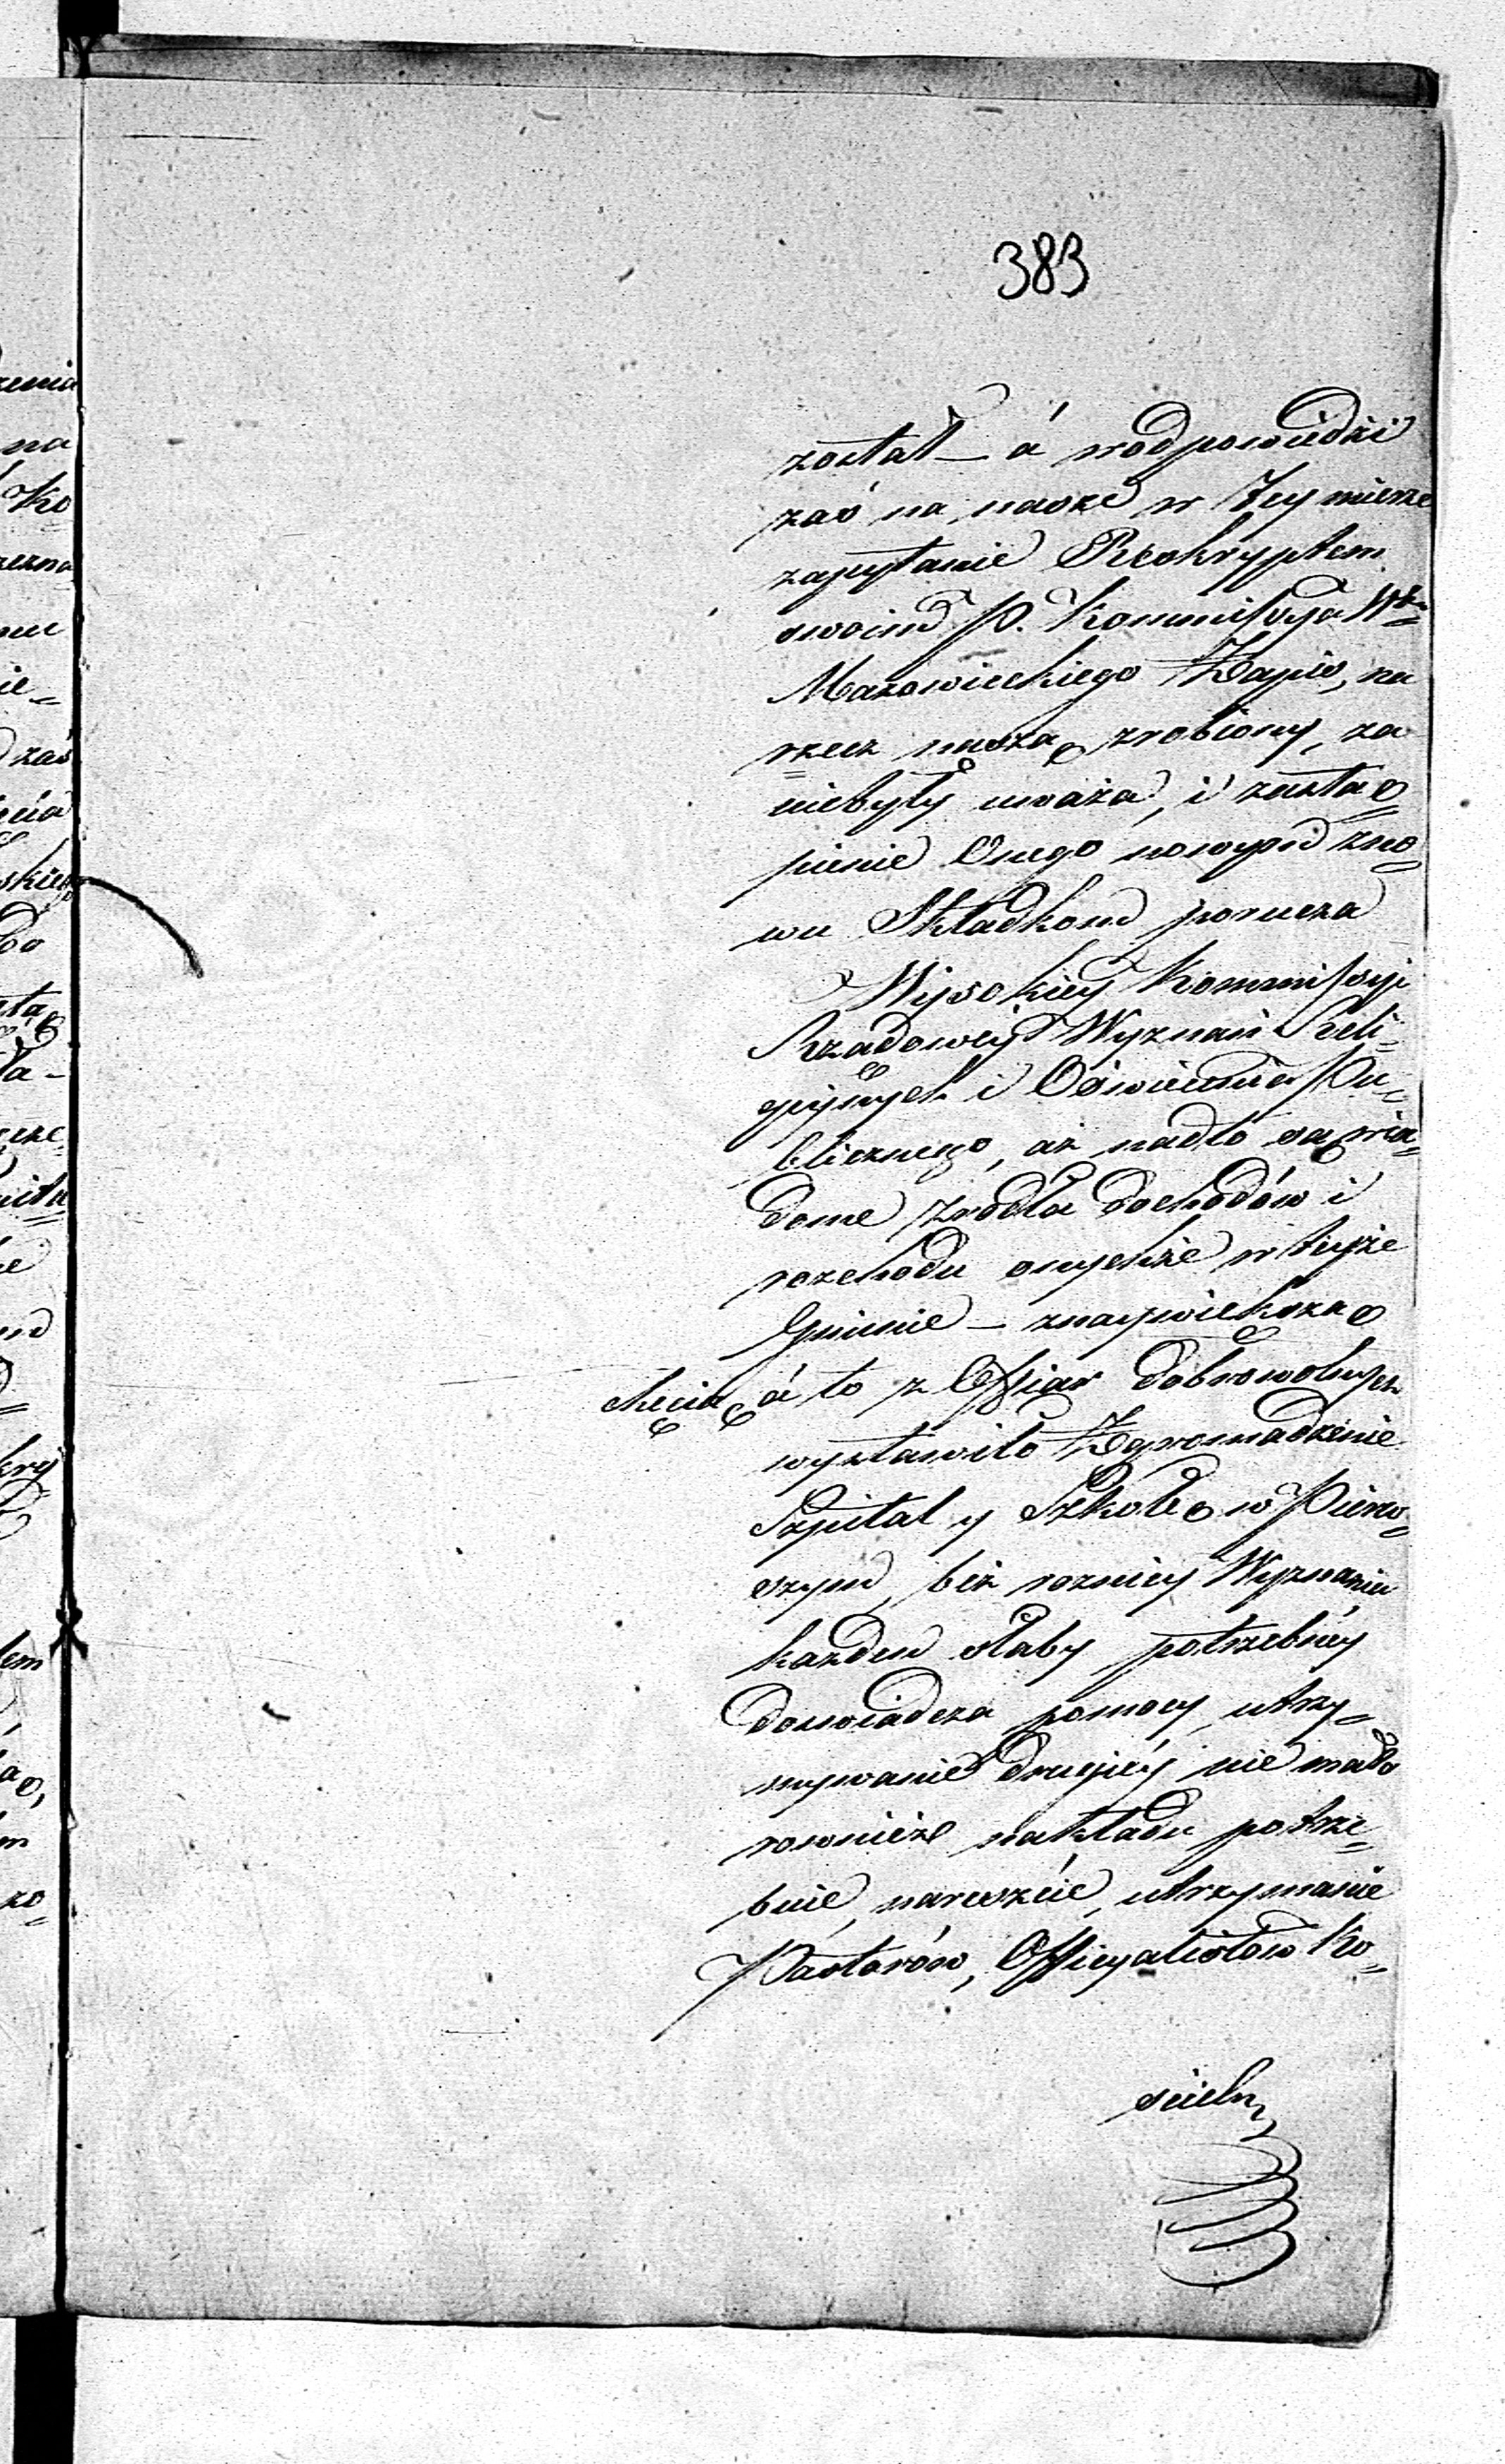 383
został – á w odpowiedzi
zaś na nasze w tey mierze
zapytanie Reskryptem
swoim P. Kommissya Wtwa
Mazowieckiego Zapis, na
rzecz naszą zrobiony, za
niebyły uważa, i zastą=
pienie Onego nowym zno=
wu Składkom porucza
Wysokiey Kommissyi
Rządowey Wyznań Reli=
gijnych i Oświecenia Pu=
blicznego, aż nadto są wia=
dome zrodła dochodów i
rozchodu onychże w teyże
Gminie – znaywiększą
chęcią á to z Offiar dobrowolnych
wystawiło Zgromadzenie
Szpital y Szkołę w Pierw=
szym, bez rożnicy Wyznania
każden słaby potrzebnéy
doswiadcza pomocy, utrzy=
mywanie drugiéy nie mało
rownież nakładu potrze=
buie, nareszcie, utrzymanie
Pastorów, Officyalistów Ko=
scieln
zenia
na
Ko
zezna
ie=
zaś
ęcia
skiego
do
itu
kry
lem
zo=